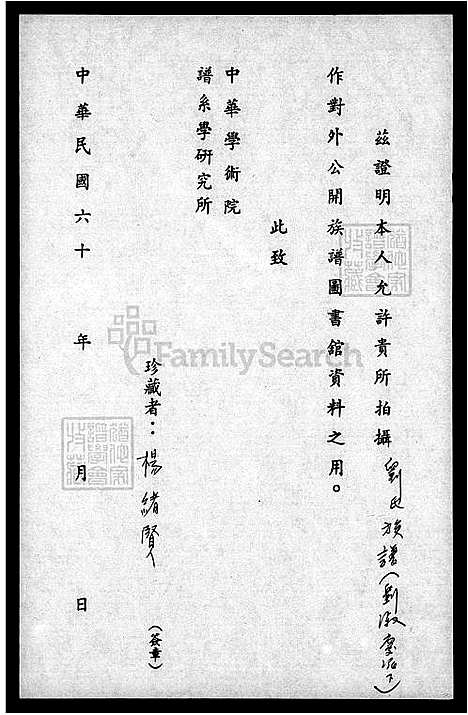 茲證明本人允許貴所拍攝劉氏族譜(劉淑臺派下)
作對外公開族譜圖書舘資料之用。
此致
中華學術院
譜系學研究所
珍藏者：楊緒賢
(簽章)
中華民國六十 年 月 日
FamilySearch